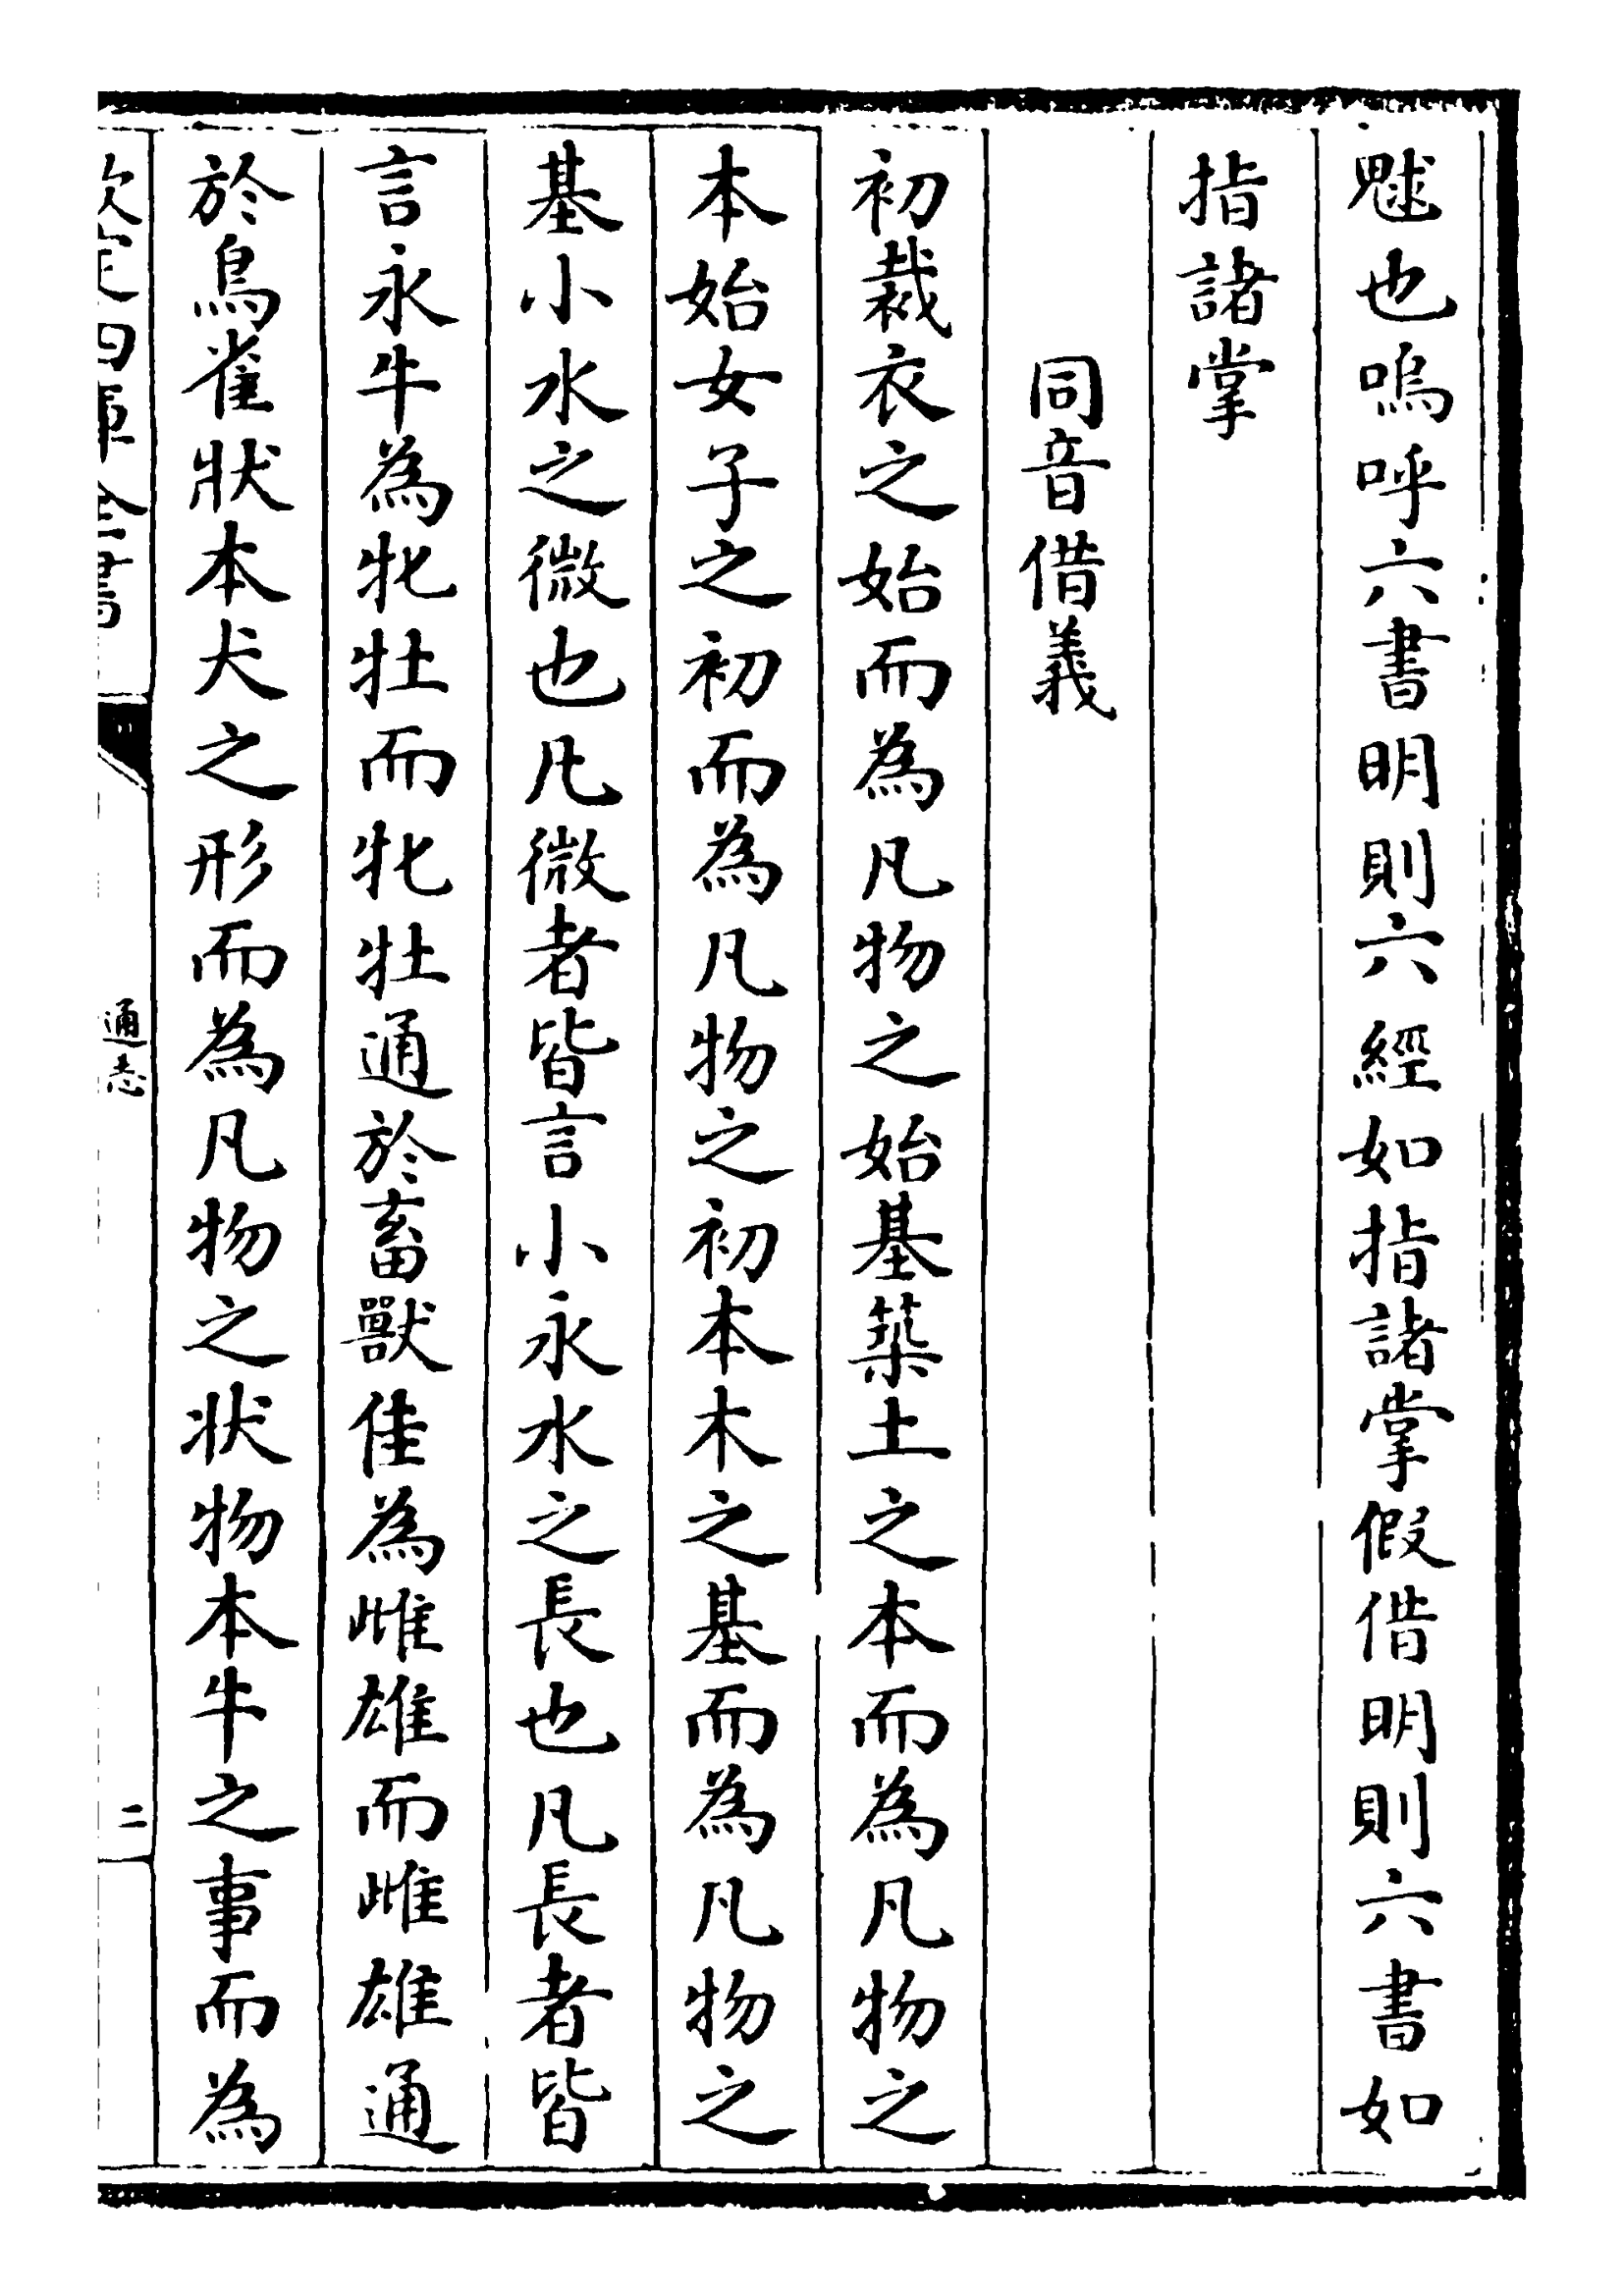 魅也嗚呼六書明則六經如指諸掌假借明則六書如
指諸掌
同音借義
初裁衣之始而為凡物之始基築土之本而為凡物之
本始女子之初而為凡物之初本木之基而為凡物之
基小水之微也凡微者皆言小永水之長也凡長者皆
言永牛為牝牡而牝牡通於畜獸隹為雌雄而雌雄通
於鳥雀狀本犬之形而為凡物之狀物本牛之事而為
欽定四庫全書
通志
二